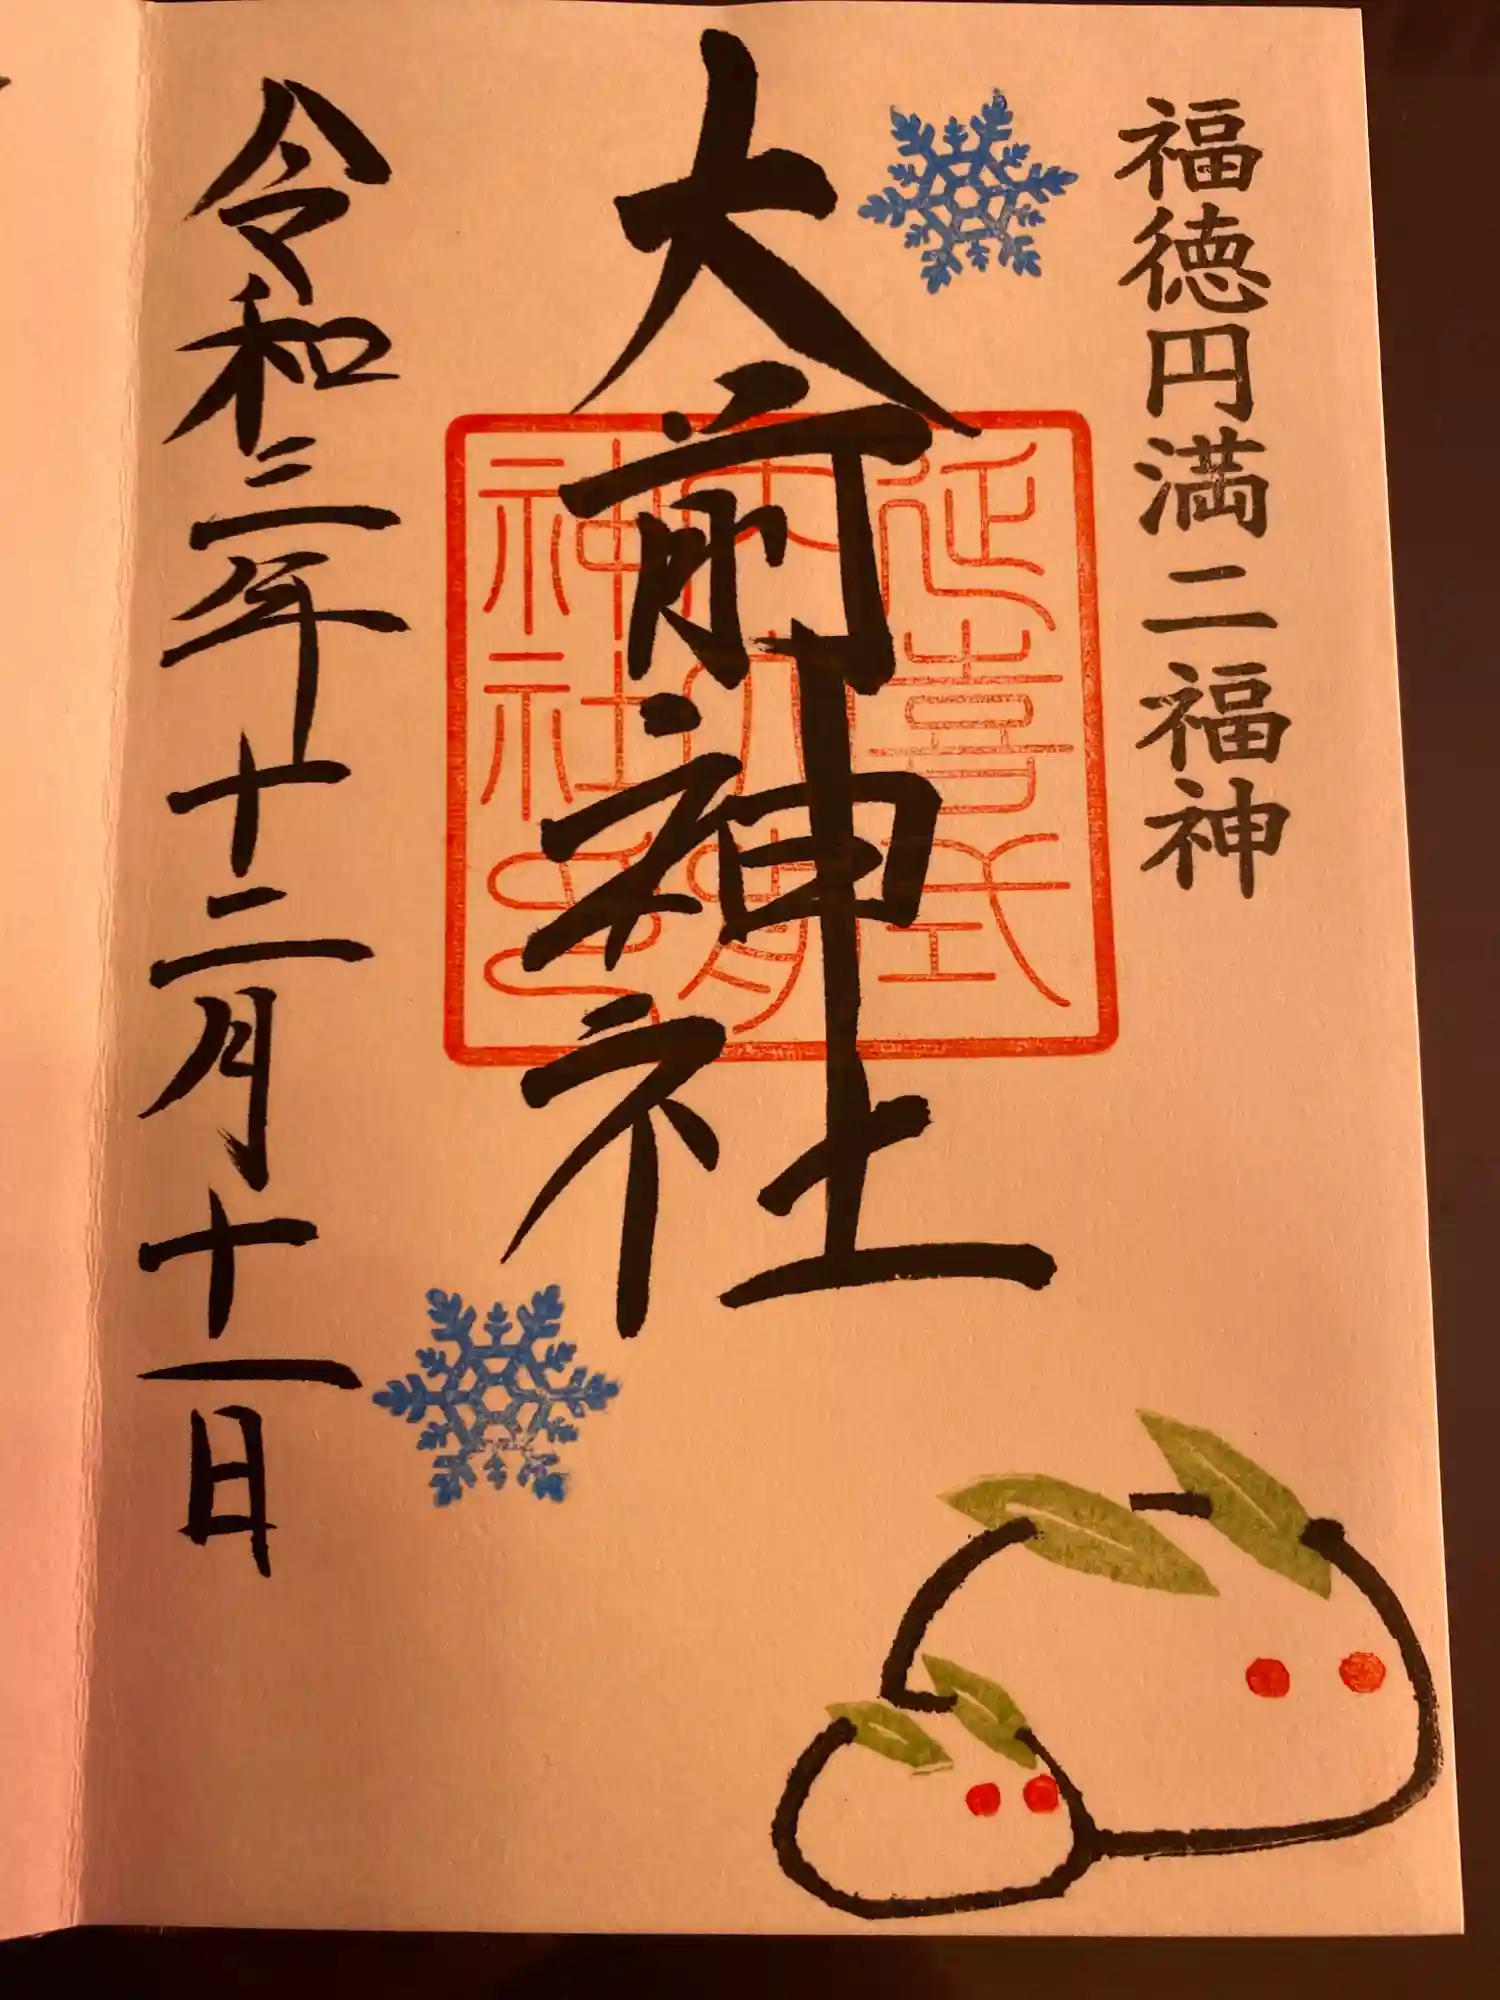 福徳円満二福神
大前神社
延喜式内大前神社印
令和三年十二月十一日